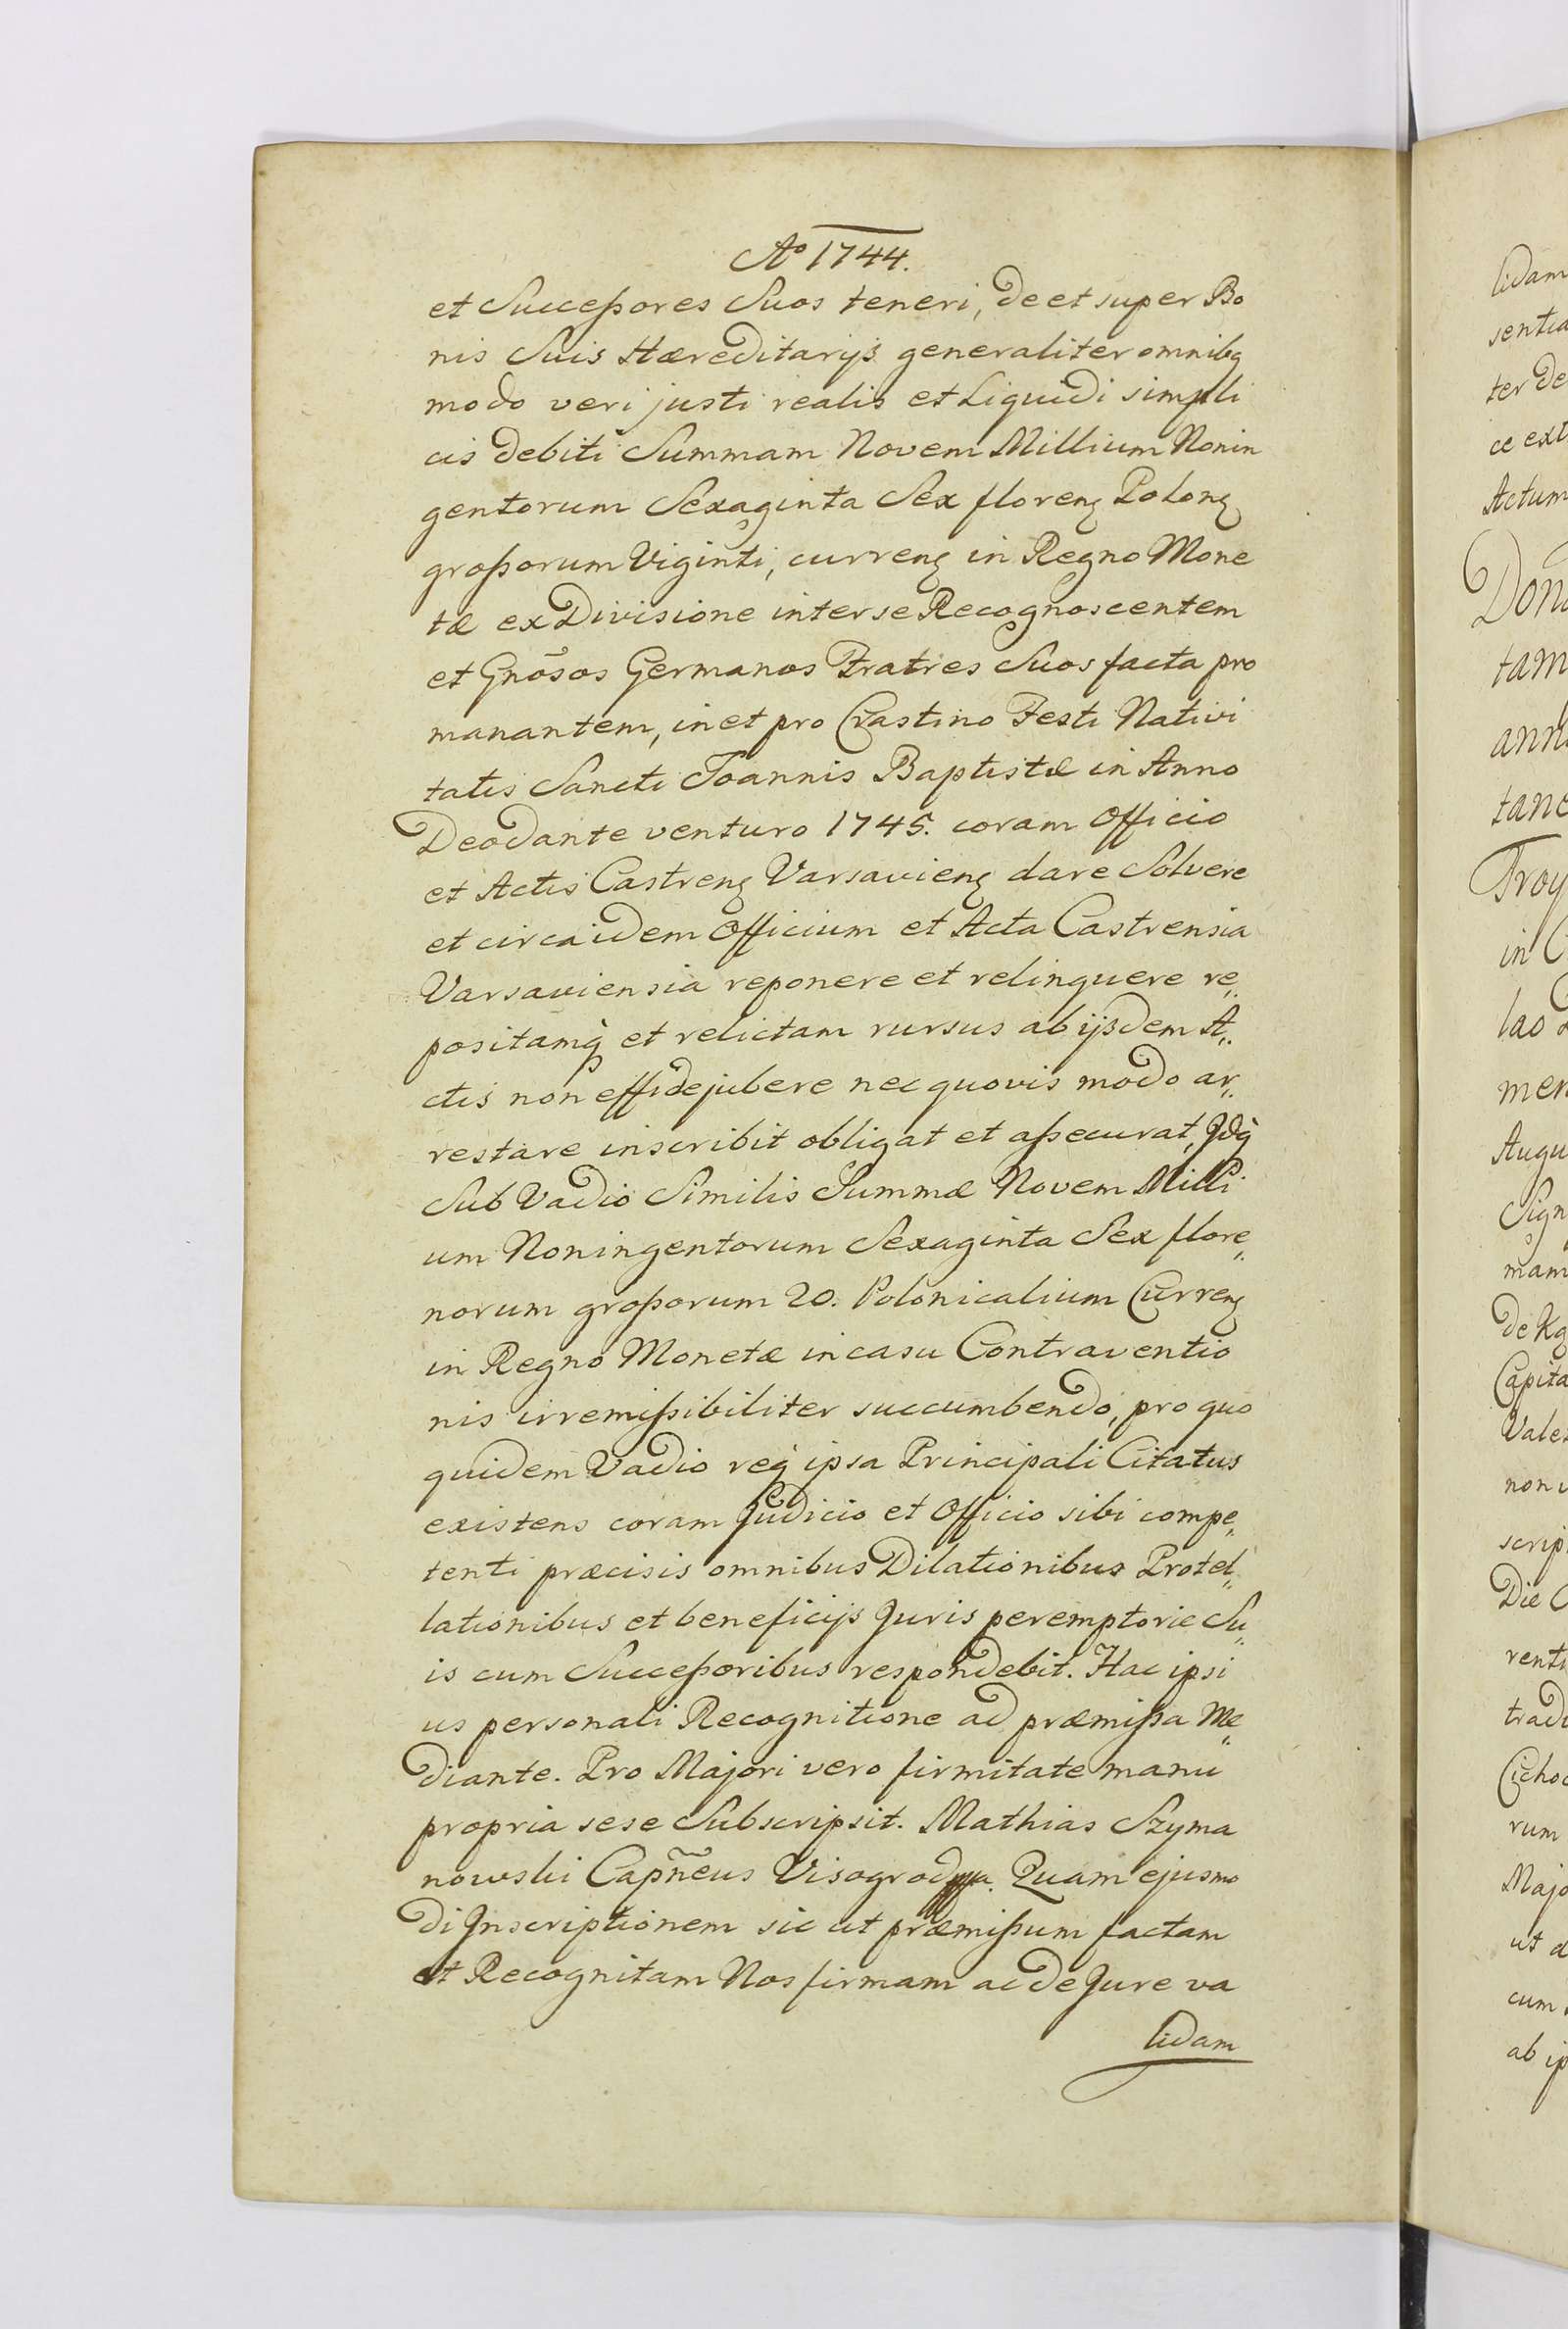 Aº 1744.
et Successores Suos teneri, de et super Bo
nis Suis Hæreditarijs generaliter omnibq
modo veri justi realis et Liquidi simpli
cis debiti Summam Novem Millium Nonin
gentorum Sexaginta Sex florenq Polonq
grossorum Viginti, currenq in Regno Mone
tæ ex Divisione inter se Recognoscentem
et Gnõsos Germanos Fratres Suos facta pro
manantem, in et pro Crastino Festi Nativi
tatis Sancti Joannis Baptistæ in Anno
Deo dante venturo 1745. coram Officio
et Actis Castrenq Varsavienq dare Solvere
et circa idem Officium et Acta Castrensia
Varsaviensia reponere et relinquere re„
positamq̀ et relictam rursus ab ijsdem A„
ctis non effidejubere nec quovis modo ar„
restare inscribit obligat et assecurat, Idq̀
Sub Vadio Similis Summæ Novem Milli
um Noningentorum Sexaginta Sex flore„
norum grossorum 20. Polonicalium Currenq
in Regno Monetæ in casu Contraventio
nis irremissibiliter succumbendo, pro quo
quidem Vadio req̀ ipsa Principali Citatus
existens coram Judicio et Officio sibi compe„
tenti præcisis omnibus Dilationibus Protel„
lationibus et beneficijs Juris peremptorie Su„
is cum Successoribus respondebit. Hac ipsi
us personali Recognitione ad præmissa Me„
diante. Pro Majori vero firmitate manu
propria sese Subscripsit. Mathias Szyma
nowski Capñeus Visogrod mppa. Quam ejusmo
di Inscriptionem sic ut præmissum factam
et Recognitam Nos firmam ac de Jure va
lidam
lidam
sentia
ter de
ce ext
Actum
tam
tane
Troy
in C
lao
mer
Augu
Sign
mam
de
Capita
Vale
non
scrip
Die
renti
tradi
Cicho
rum
Majo
ut
cum
ab ip